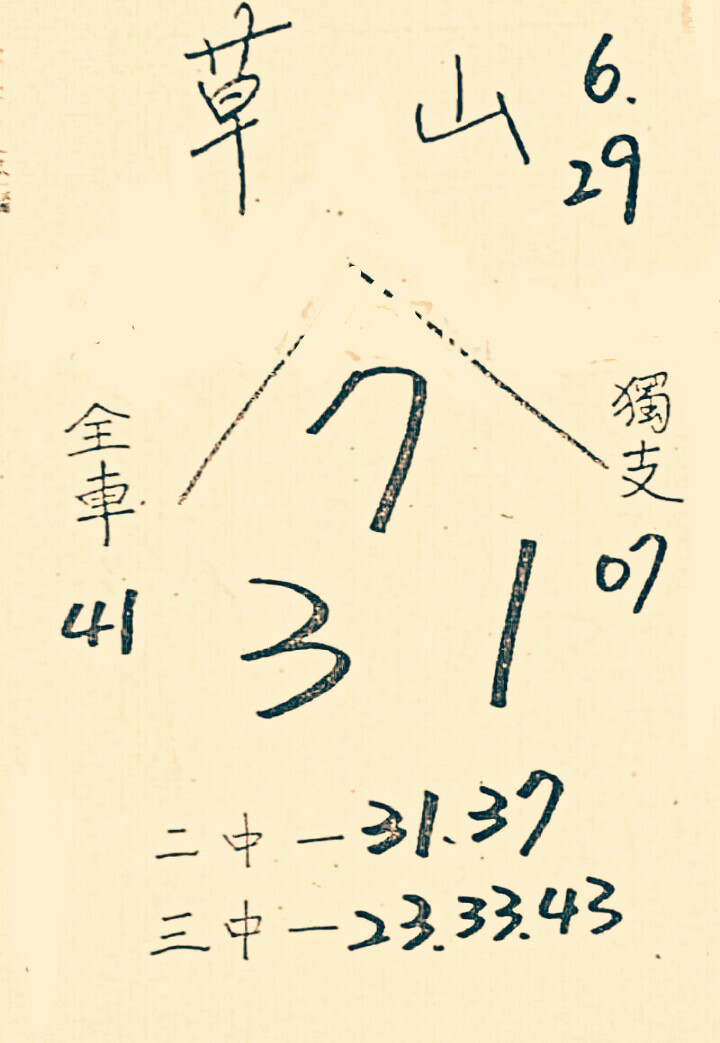 草山 6.
29
7
全車 獨支
41 07
3 1
二中一31.37
三中一23.33.43